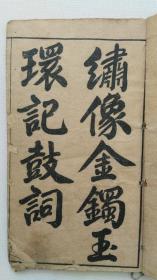 繡像金鐲玉
環記鼓詞